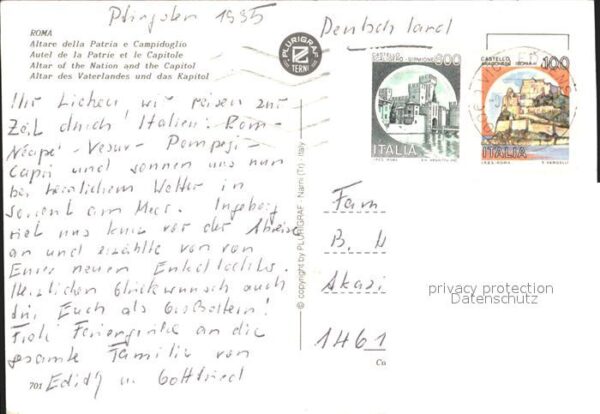 Pfingsten 1995
Deutschland
ROMA
Altare della Patria e Campidoglio
Autel de la Patrie et le Capitole
Altar of the Nation and the Capitol
Altar des Vaterlandes und das Kapitol
PLURIGRAF
TERNI
CASTELLO
SIRMIONE 600
ITALIA
I.P.Z.S. ROMA
CASTELLO
ARAGONESE ISCHIA 100
ITALIA
I.P.Z.S. ROMA
Ihr Lieben, wir reisen zur
Zeit durch Italien: Rom-
Neapel - Vesuv - Pompeji -
Capri und sonnen uns nun
bei herrlichem Wetter in
Sorrent am Meer. Ingeborg
rief uns kurz vor der Abreise
an und erzählte von
Eurer neuen Enkeltochter.
Herzlichen Glückwunsch auch
Euch als Großeltern!
Frohe Feriengrüße an die
gesamte Familie von
Edith u. Gottfried
© copyright by PLURIGRAF - Narni (Tr) - Italy
Fam
B. M
Akazi
1461
privacy protection
Datenschutz
701